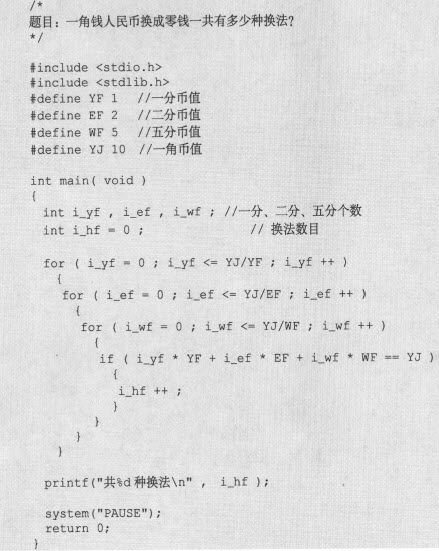 /*
题目：一角钱人民币换成零钱一共有多少种换法？
*/
#include <stdio.h>
#include <stdlib.h>
#define YF 1 //一分币值
#define EF 2 //二分币值
#define WF 5 //五分币值
#define YJ 10 //一角币值
int main( void )
{
int i_yf , i_ef , i_wf ; //一分、二分、五分个数
int i_hf = 0 ; // 换法数目
for ( i_yf = 0 ; i_yf <= YJ/YF ; i_yf ++ )
{
for ( i_ef = 0 ; i_ef <= YJ/EF ; i_ef ++ )
{
for ( i_wf = 0 ; i_wf <= YJ/WF ; i_wf ++ )
{
if ( i_yf * YF + i_ef * EF + i_wf * WF == YJ )
{
i_hf ++ ;
}
}
}
}
printf("共%d 种换法\n" , i_hf );
system("PAUSE");
return 0;
}